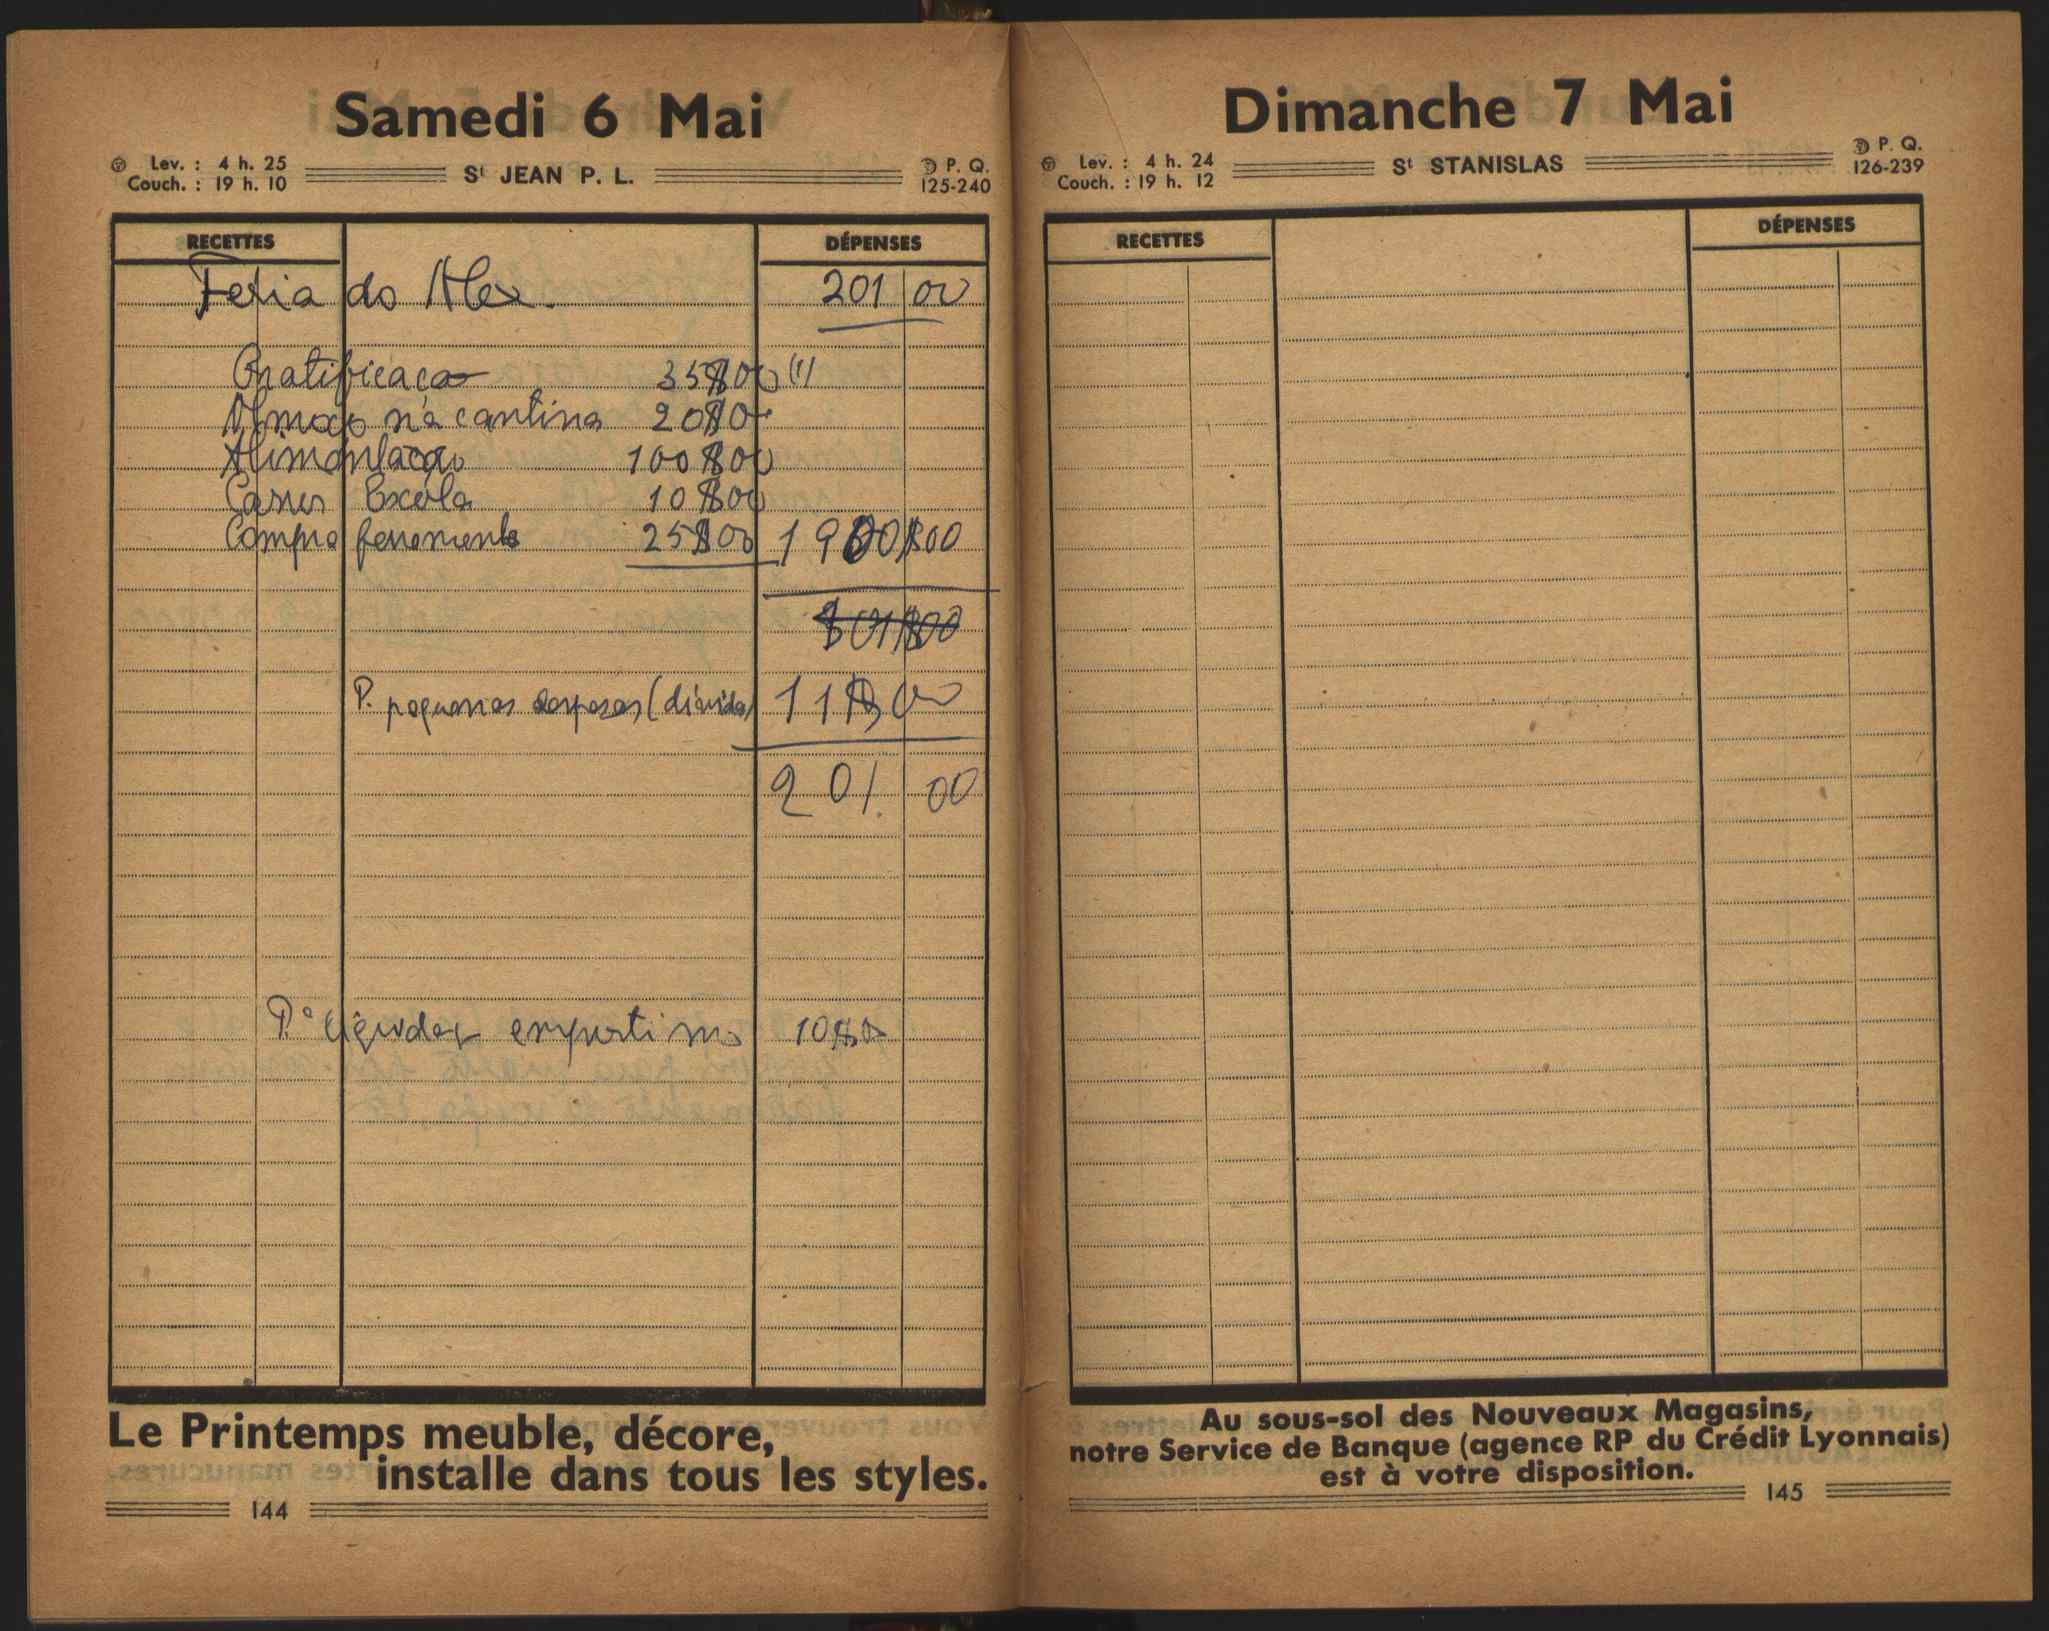 Samedi 6 Mai
Lev. : 4 h. 25
Couch. : 19 h. 10
St JEAN P. L.
P. Q.
125-240
RECETTES
DÉPENSES
Feria do Alex. 201 00
Gratificação 35$00 (1)
Almoço na cantina 20$0
Alimentação 100$00
Carnes Escola 10$00
Compra ferramenta 25$00 190$00
P. pequenas despesas (dividas) 11$00
201. 00
P.º emprestimo 10$0
Le Printemps meuble, décore,
installe dans tous les styles.
144
Dimanche 7 Mai
Lev. : 4 h. 24
Couch. : 19 h. 12
St STANISLAS
P. Q.
126-239
RECETTES
DÉPENSES
Au sous-sol des Nouveaux Magasins,
notre Service de Banque (agence RP du Crédit Lyonnais)
est à votre disposition.
145